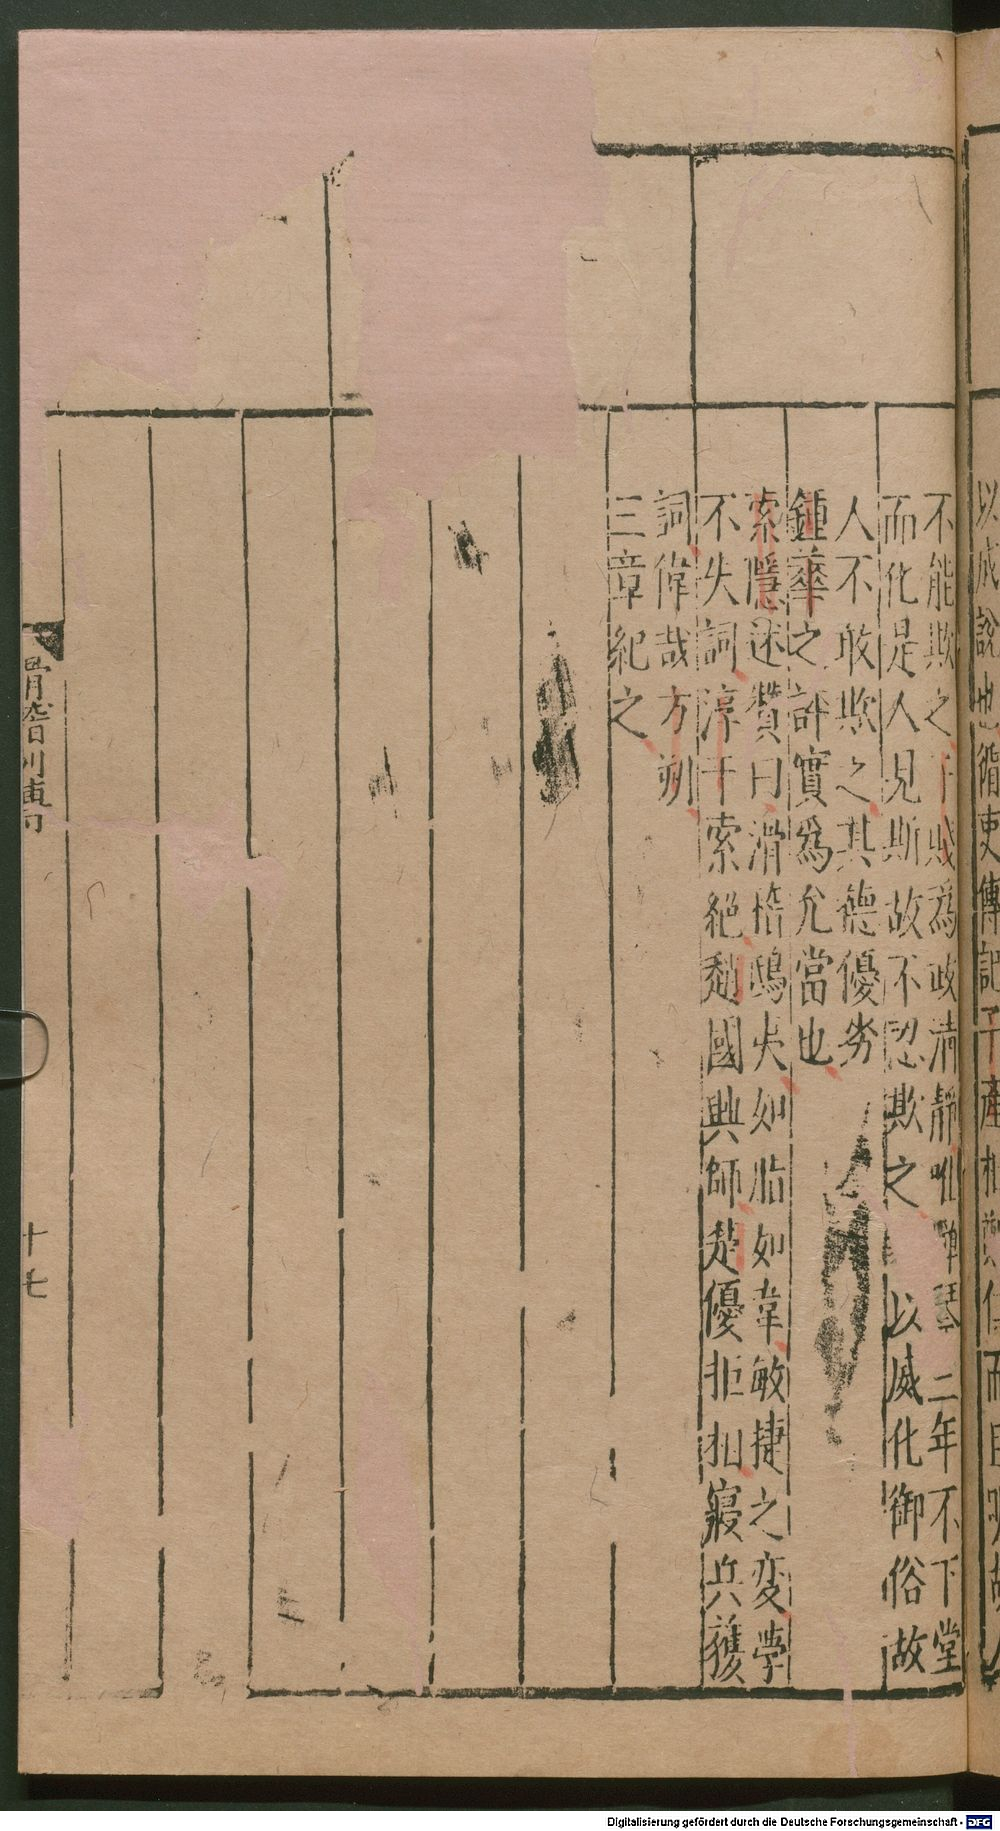 以成說也循吏傳記子產相鄭仁而且明故人
不能欺之子賤爲政清靜唯彈琴三年不下堂
而化是人見斯故不忍欺之 以威化御俗故
人不敢欺之其德優劣
鍾華之評實爲允當也
索隱述贊曰滑稽鴟夷如脂如韋敏捷之變學
不失詞淳于索絕趙國興師楚優拒相寢兵獲
詞偉哉方朔
三章紀之
滑稽列傳
十七
Digitalisierung gefördert durch die Deutsche Forschungsgemeinschaft - DFG